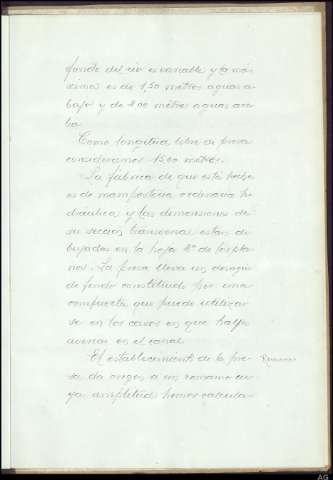 fondo del rio es variable y la má-
xima es de 1,50 metros aguas a-
bajo y de 2'00 metros aguas arri-
ba
Como longitud libre de presa
consideramos 15'60 metros.
La fábrica de que está hecha
es de mamposteria ordinaria hi-
dráulica y las dimensiones de
su sección transversal estan di-
bujadas en la hoja 4ª de los pla-
nos. La presa lleva un desague
de fondo constituido por una
compuerta que puede utilizar-
se en los casos en que haya
averias en el canal.
El establecimiento de la pre-
sa da origen a un remanso cu-
ya amplitud hemos calcula-
Remanso
AG